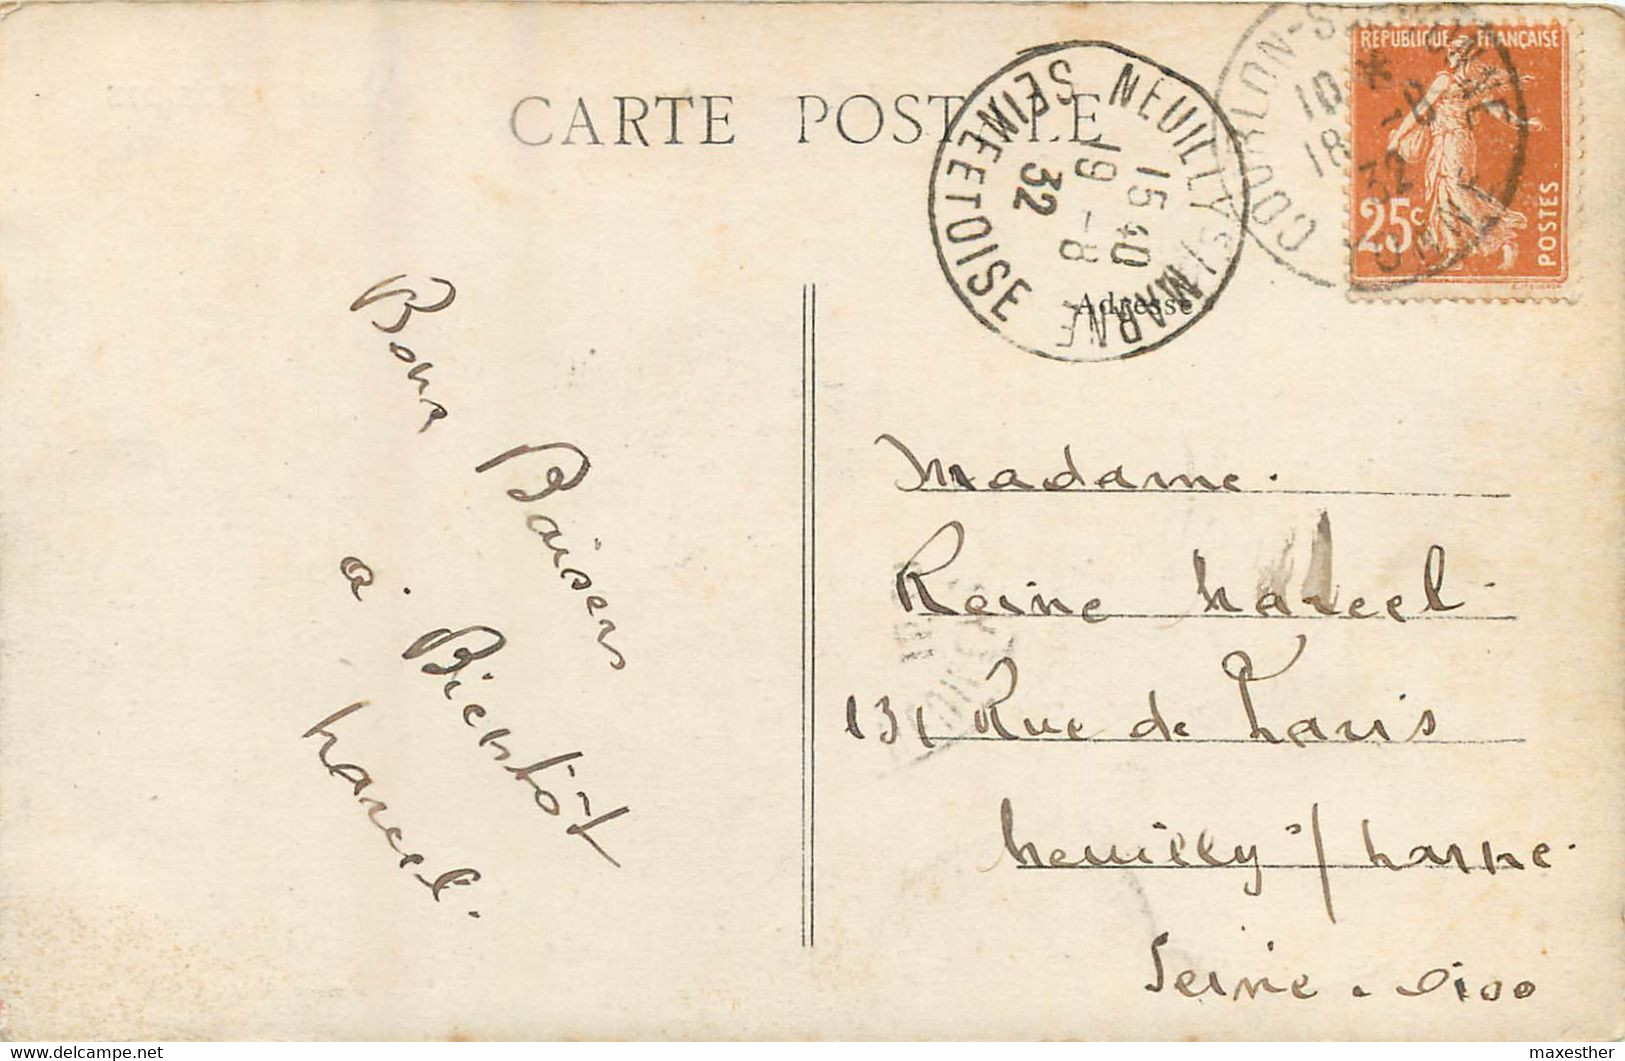 CARTE POSTALE
NEUILLY S/ MARNE
SEINE ET OISE
15 40
19 -8
32
COURLON-S-YONNE
YONNE
10 *
18 -8
32
REPUBLIQUE FRANÇAISE
25c
POSTES
Adresse
Bons Baisers
a Bientôt
Marcel.
Madame.
Reine Marcel
131 Rue de Paris
Neuilly s/ Marne.
Seine. Oise
maxesther